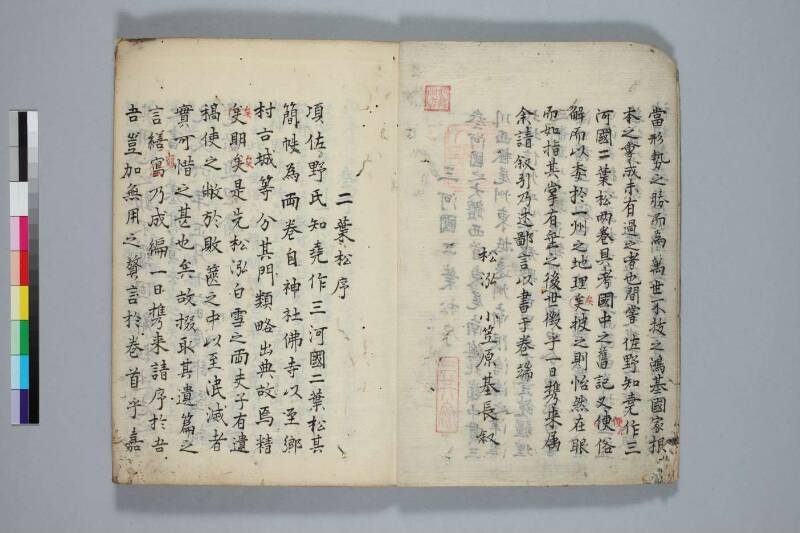 當形勢之勝而為萬世不拔之鴻基國家根
本之會或未有過之者也間嘗佐野知堯作三
河國二葉松兩卷具考國中之舊記又使俗
解而以委於一州之地理矣披之則恰然在眼
而如指其掌有益之後世徵乎一日携來属
余請叙引乃述鄙言以書于卷端
松泓小笠原基長叙
二葉松序
項佐野氏知堯作三河國二葉松其
簡帙為両卷自神社佛寺以至鄉
村古城等分其門類略出典故焉精
矣明矣是先松泓白雪之両夫子有遺
稿使之敝於敗篋之中以至泯滅者
實可惜之甚也矣故掇取其遺篇之
言繕寫乃成編一日携来請序於吾
吾豈加無用之贅言於卷首乎嘉